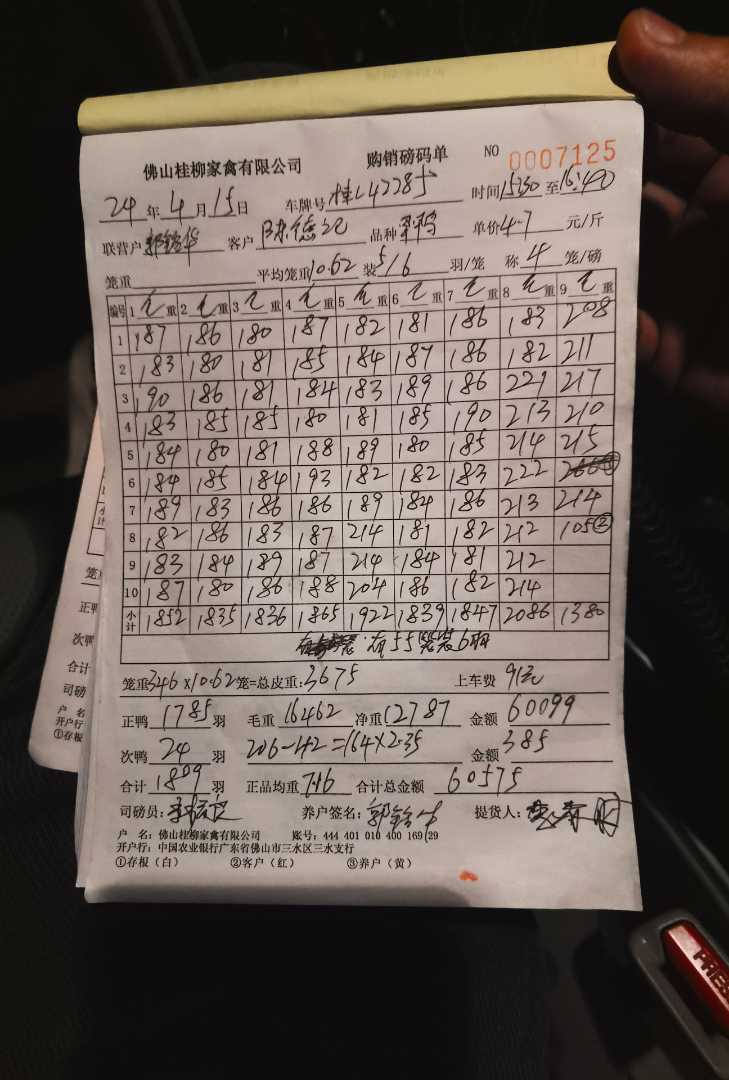 佛山桂柳家禽有限公司 购销磅码单 NO 0007125
24年4月15日 车牌号桂L47785 时间15:30至16:40
联营户 客户陈德记 品种 单价4.7元/斤
笼重 平均笼重10.62装5/6羽/笼 称4笼/磅
编号 1毛重 2毛重 3毛重 4毛重 5毛重 6毛重 7毛重 8毛重 9毛重
1 187 186 180 187 182 181 186 183 208
2 183 180 181 185 184 187 186 182 211
3 190 186 181 184 183 189 186 221 217
4 183 185 185 180 181 185 190 213 210
5 184 180 181 188 189 180 185 214 215
6 184 185 184 193 182 182 183 222
7 189 183 186 186 189 184 186 213 214
8 182 186 183 187 214 181 182 212 105②
9 183 184 189 187 214 184 181 212
10 187 180 186 188 204 186 182 214
小计 1852 1835 1836 1865 1922 1839 1847 2086 1380
有55笼装6羽
笼重346×10.62笼=总皮重:3675 上车费 91元
正鸭1785羽 毛重16462净重12787 金额60099
次鸭24羽 206-42=164×2.35 金额385
合计1809羽 正品均重7.16 合计总金额60575
司磅员: 养户签名: 提货人:
户 名:佛山桂柳家禽有限公司 账号:444 401 010 400 169 29
开户行:中国农业银行广东省佛山市三水区三水支行
①存根(白) ②客户(红) ③养户(黄)
小计
笼
正鸭
次鸭
合计
司磅
户 名
开户行
①存根
PRESS